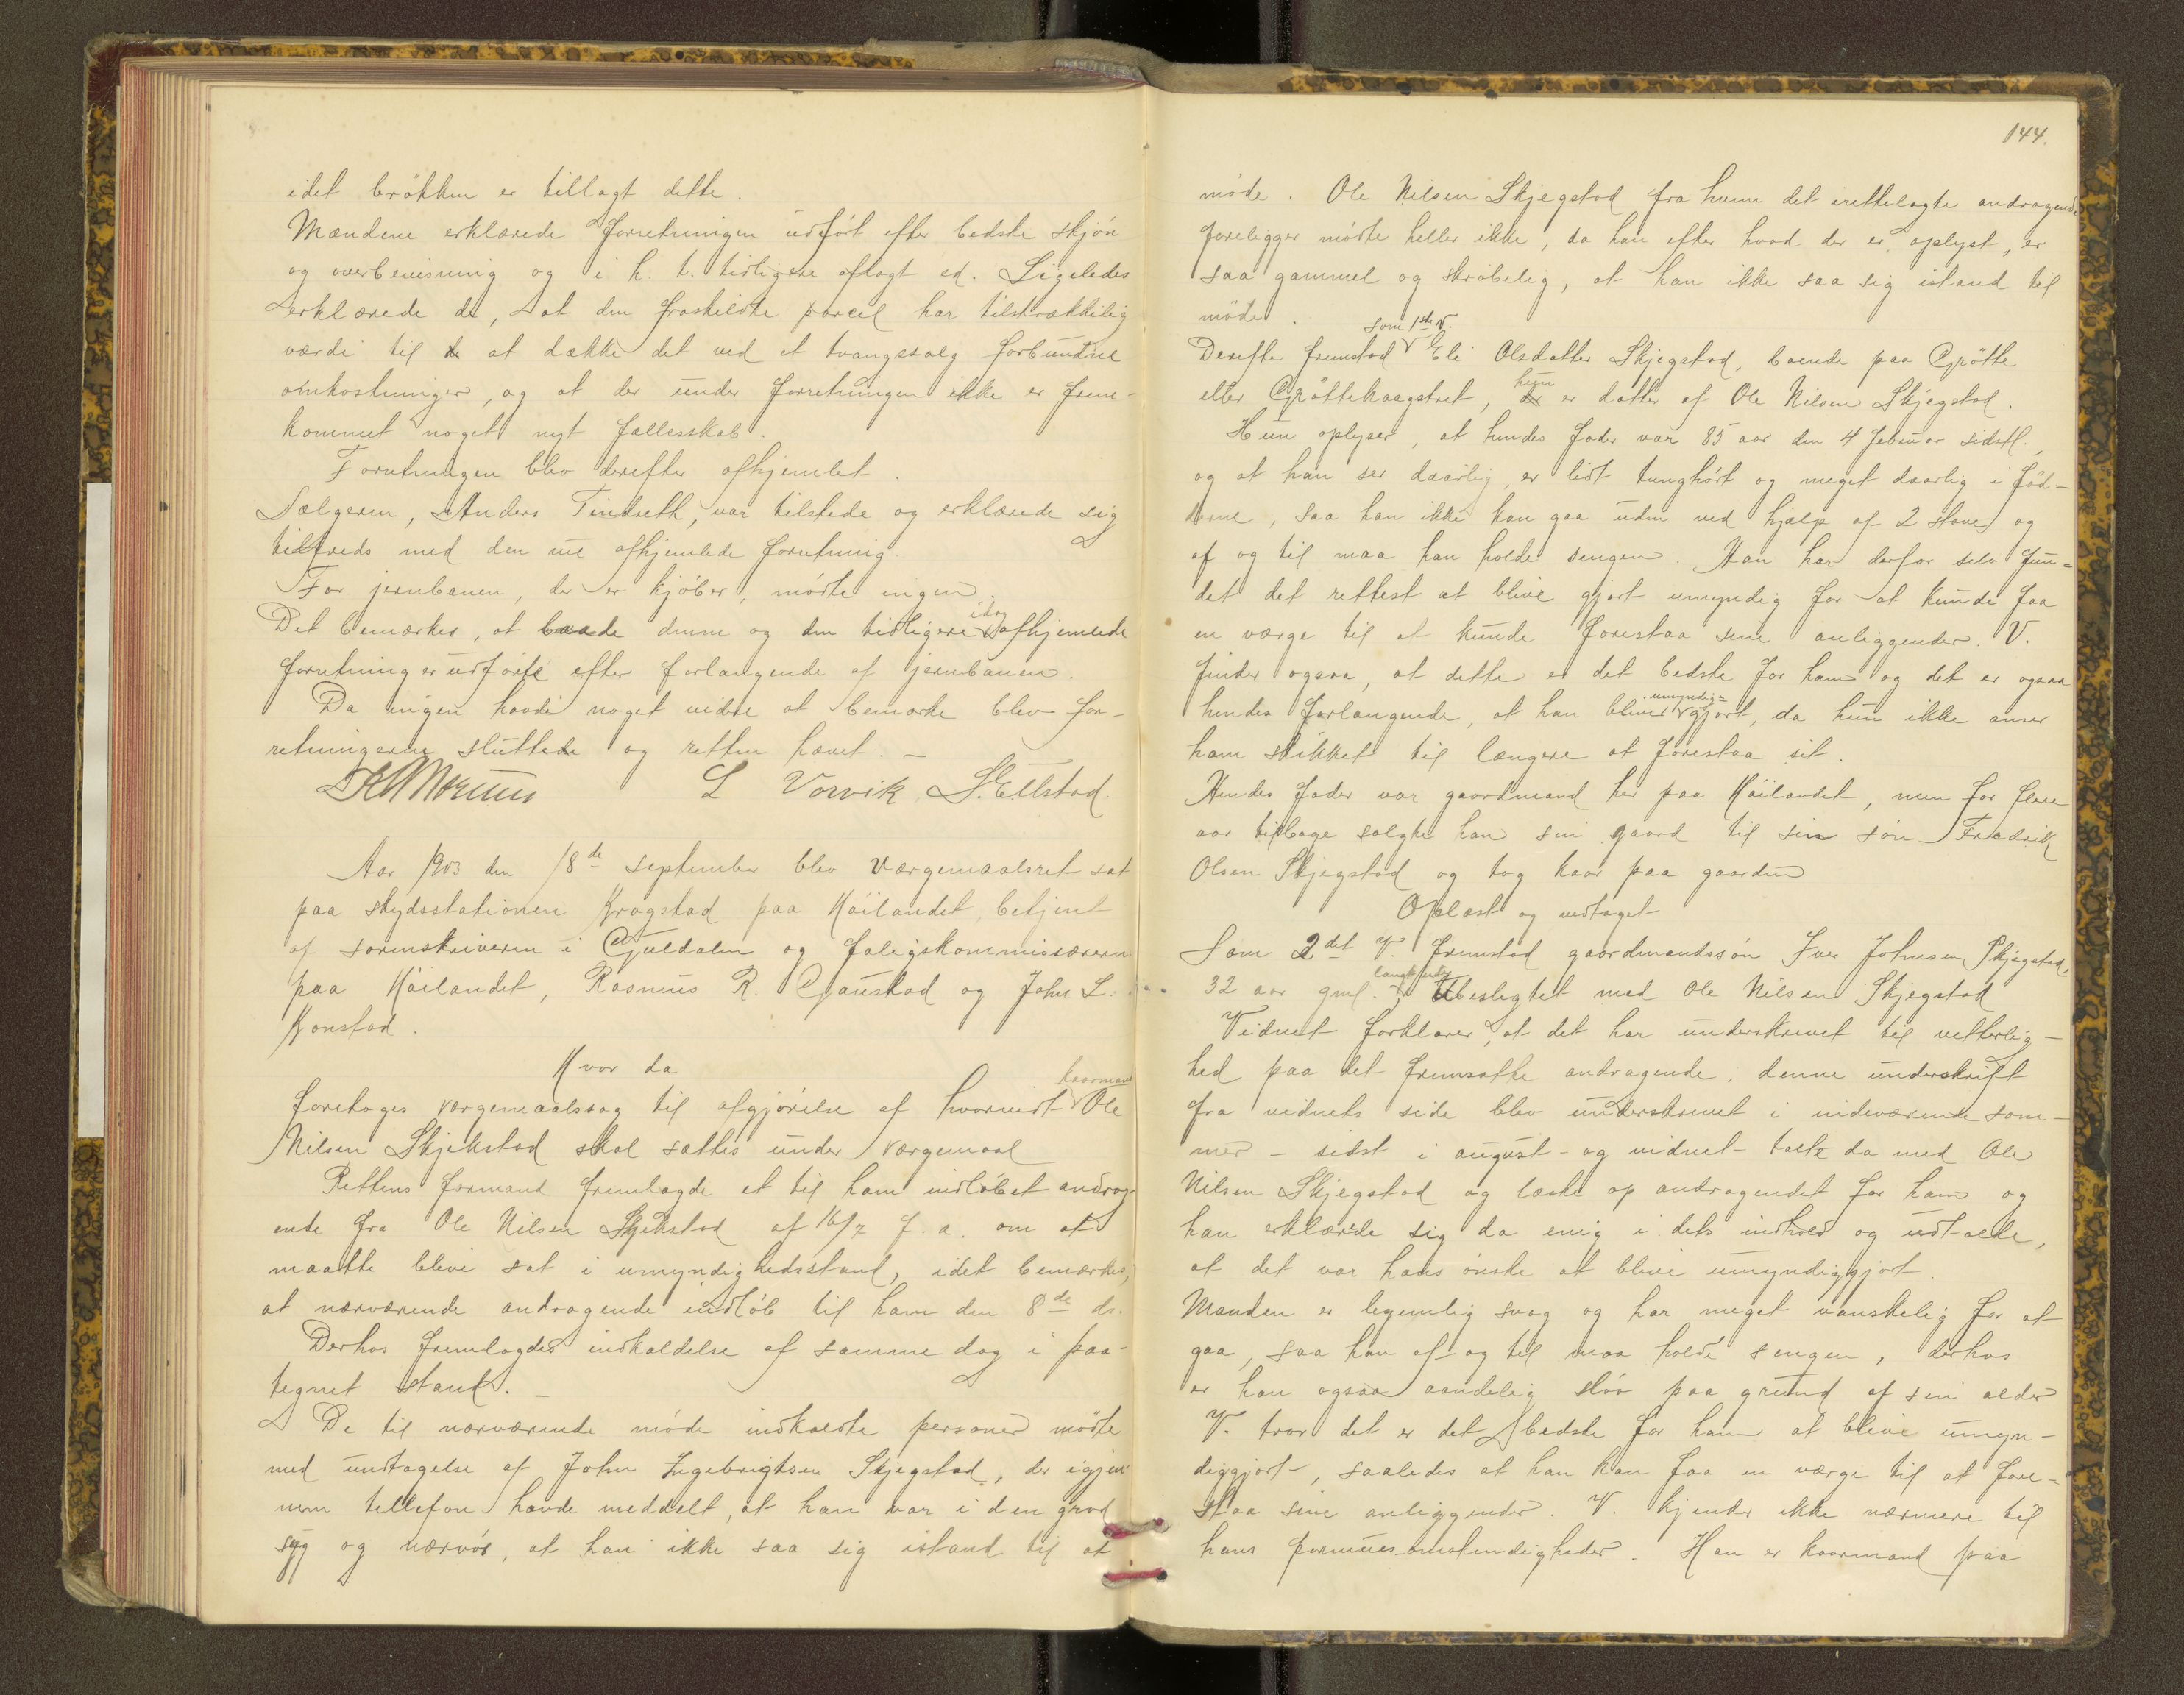 idet brøkken er tillagt dette.
Mændene erklærede forretningen udført efter bedste skjøn
og overbevisning og i h. t. tidligere aflagt ed. Ligeledes
erklærede de, at den fraskildte parcel har tilstrækkelig
værdi til at dække det ved et tvangssalg forbundne
omkostninger, og at der under forretningen ikke er frem-
kommet noget nyt fællesskab.
Forretningen blev derefter afhjemlet.
Sælgeren, Anders Tindseth, var tilstede og erklærede sig
tilfreds med den nu afhjemlede forretning.
For jernbanen, der er kjøber, mødte ingen.
Det bemærkes, at baade denne og den tidligere idag afhjemlede
forretning er udførte efter forlangende af jernbanen.
Da ingen havde noget videre at bemærke blev for-
retningerne sluttede og retten hævet. –
L Vorvik S. Ellstad.
Aar 1903 den 18de september blev Værgemaalsret sat
paa skydsstationen Kragstad paa Høilandet, betjent
af sorenskriveren i Guldalen og faligskommissærerne
paa Høilandet, Rasmus R. Gaustad og John L.
Konstad.
Hvor da
foretoges værgemaalssag til afgjørelse af hvorvidt kaarmand Ole
Nilsen Skjekstad skal sættes under værgemaal
Rettens formand fremlagde et til ham indløbet andrag-
ende fra Ole Nilsen Skjekstad af 16/7 f. a. om at
maatte blive sat i umyndighedsstand, idet bemærkes,
at nærværende andragende indløb til ham den 8de ds.
Derhos fremlagdes indkaldelse af samme dag i paa-
tegnet stand. –
De til nærværende møde indkaldte personer mødte
med undtagelse af John Ingebrigtsen Skjegstad, der igjen-
nem tellefon havde meddelt, at han var i den grad
syg og nærvøs, at han ikke saa sig istand til at
144.
møde. Ole Nilsen Skjegstad fra hvem det irettelagte andragende
foreligger mødte heller ikke, da han efter hvad der er oplyst, er
saa gammel og skrøbelig, at han ikke saa sig istand til
møde.
Derefter fremstod som 1ste V. Eli Olsdatter Skjegstad, boende paa Grøtte
eller Grøttehaagstret, hun er datter af Ole Nilsen Skjegstad.
Hun oplyser, at hendes fader var 85 aar den 4 februar sidstl.,
og at han ser daarlig, er lidt tunghørt og meget daarlig i fød-
derne, saa han ikke kan gaa uden ved hjælp af 2 staver og
af og til maa han holde sengen. Han har derfor selv fun-
det det rettest at blive gjort umyndig for at kunde faa
en værge til at kunde forestaa sine anliggender. V.
finder ogsaa, at dette er det bedste for ham og det er ogsaa
hendes forlangende, at han bliver umyndig- gjort, da hun ikke anser
ham skikket til længere at forestaa sit.
Hendes fader var gaardmand her paa Høilandet, men for flere
aar tilbage solgte han sin gaard til sin søn Fredrik
Olsen Skjegstad og tog kaar paa gaarden
Oplæst og vedtaget
Som 2det V. fremstod gaardmandssøn Iver Johnsen Skjegstad,
32 aar gml. langt ude beslegtet med Ole Nilsen Skjegstad
Vidnet forklarer, at det har underskrevet til vitterlig-
hed paa det fremsatte andragende; denne underskrift
fra vidnets side blev underskrevet i nideværende som-
mer – sidst i august – og vidnet talte da med Ole
Nilsen Skjegstad og læste op andragendet for ham og
han erklærede sig da enig i dets indhold og udtalte,
at det var hans ønske at blive umyndiggjort.
Manden er legemlig svag og har meget vanskelig for at
gaa, saa han af og til maa holde sengen, derhos
er han ogsaa aandelig sløv paa grund af sin alder
V. tror det er det bedste for ham at blive umyn-
diggjort, saaledes at han kan faa en værge til at fore-
staa sine anliggender. V. kjender ikke nærmere til
hans formues-omstendigheder. Han er kaarmand paa